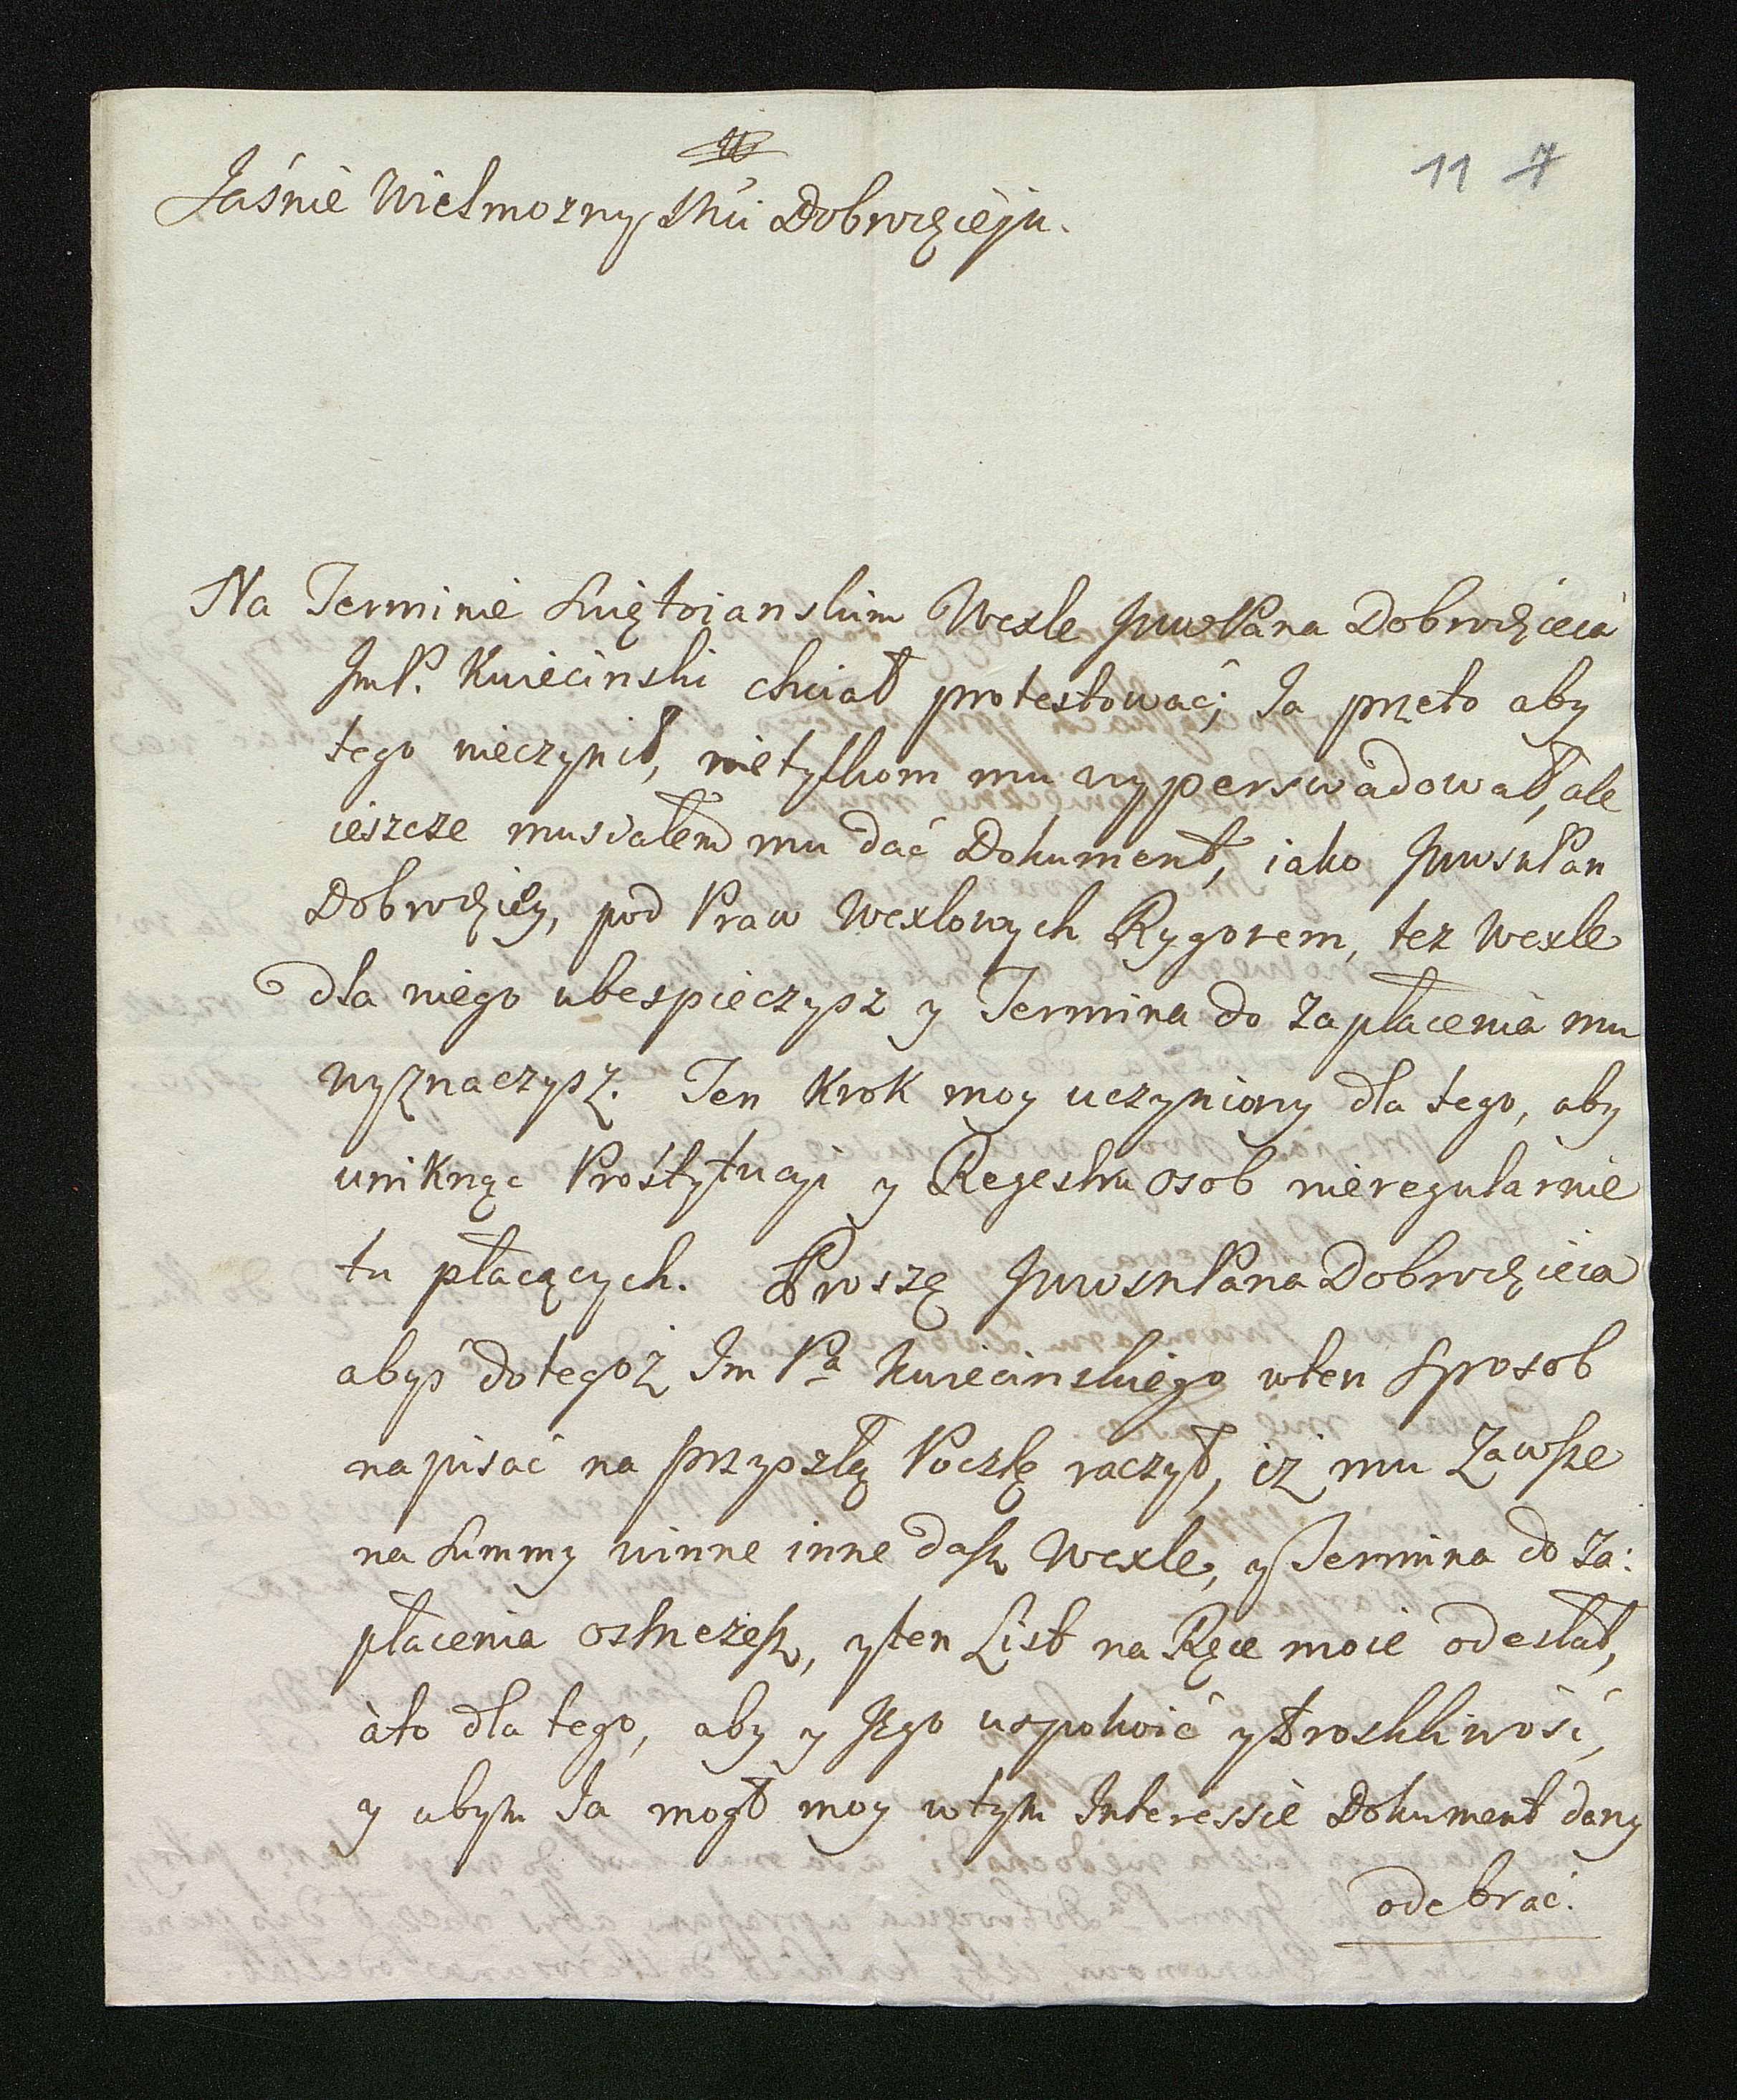 11 7
Jaśnie Wielmozny Mći Dobrodzieju.
Na Terminie Swiętoianskim Wexle JwwPana Dobrodzieia
JmP. Kwiecinski chciał protestować; Ja przeto aby
tego nieczynił, nietylkom mu wyperswadował, ale
ieszcze musiałem mu dać Dokument, iako JwwsnPan
Dobrodziey, pod Praw Wexlowych Rygorem, tez Wexle
dla niego ubespieczysz y Termina do zapłacenia mu
wyznaczysz. Ten Krok moy uczyniony dla tego, aby
uniknąc Prostytucyi y Regestru osob nieregularnie
tu płacących. Proszę JwwsnPana Dobrodzieia
abys do tegoż Jm Pa Kwiecinskiego wten sposob
napisać na przyszłą Pocztę raczył, iż mu zawsze
na Summy winne inne dasz Wexle, y Termina do za:
płacenia ostrzeżesz, y ten List na Ręce moie odesłał,
àto dla tego, aby y Jego uspokoić troskliwość,
y abym Ja mogł moy wtym Interessie Dokument dany
odebrać.